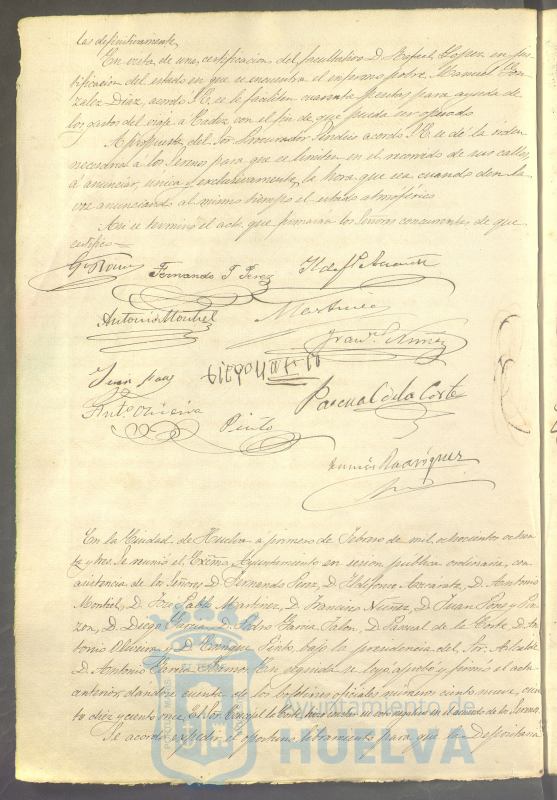 las definitivamente.
En vista de una certificacion del facultativo D. Rafael Lopez en jus-
tificacion del estado en que se encuentra el enfermo pobre Manuel Gon-
zalez Diaz, acordó S.E. se le faciliten cuarenta pesetas para ayuda de
los gastos del viaje a Cadiz con el fin de que pueda ser operado
A propuesta del Sor. Procurador Sindico acordó S.E. se dé la orden
necesaria a los Serenos para que se limiten en el recorrido de sus calles,
á anunciar, única y exclusivamente, la hora que sea cuando den la
voz anunciando al mismo tiempo el estado atmosférico
Asi se terminó el acto, que firmaran los Señores concurrentes de que
certifico=
Fernando T. Perez
Antonio Montiel
Martinez
Franco. Nuñez
Juan Pons
Pascual de la Corte
Anto. Oliveira
Pinto
Rodriguez
En la Ciudad de Huelva á primero de Febrero de mil ochocientos ochen-
ta y tres. Se reunió el Excmo. Ayuntamiento en sesion publica ordinaria, con
asistencia de los Señores D. Fernando Perez, D. Ildefonso Azcarate, D. Antonio
Montiel, D. José Pablo Martinez, D. Francisco Nuñez, D. Juan Pons y Pin-
zon, D. Diego Garcia, D. Pedro Garcia Jalon, D. Pascual de la Corte, D. An-
tonio Oliveira y D. Enrique Pinto, bajo la presidencia del Sor. Alcalde
D. Antonio Garcia Ramos. En seguida se leyó, aprobó y firmó el acta
anterior, dandose cuenta de los boletines oficiales números ciento nueve, cien-
to diez y ciento once. el Sor. Concejal la Corte hace constar su voto negativo en el acuerdo de los Serenos
Se acordó expedir el oportuno libramiento para que la Depositaria
Ayuntamiento de
HUELVA